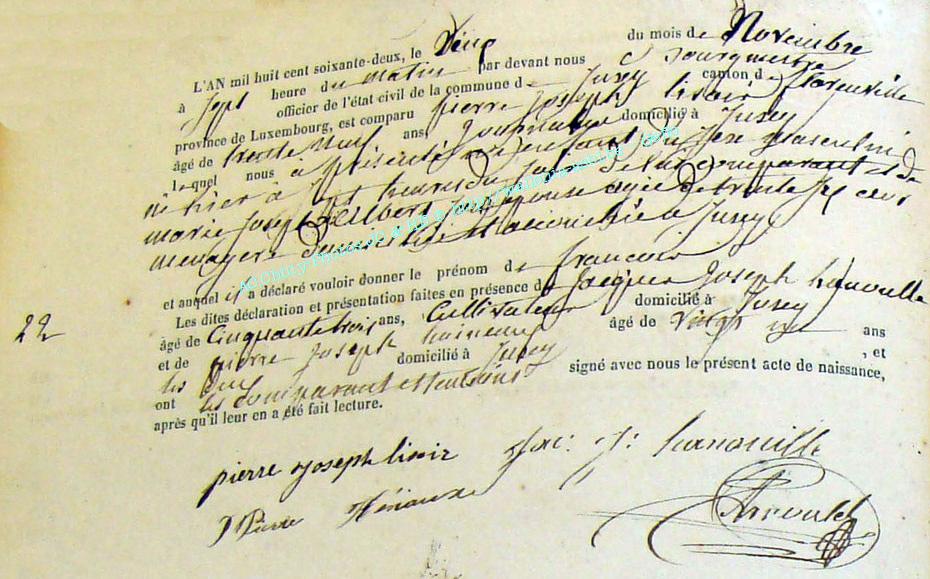 L'AN mil huit cent soixante-deux, le du mois de Novembre
à Sept heure du matin par devant nous Bourgmestre
officier de l'état civil de la commune de Jusey canton de florenville
province de Luxembourg, est comparu pierre Joseph lisoir
âgé de trente neuf ans Journalier domicilié à Jusey
lequel nous a présenté un enfant du sexe masculin
né hier à Sept heures du Soir de lui comparant et de
marie Joseph Gilbert Son épouse agée de trente Six ans
menagere domiciliée à Jusey
et auquel il a déclaré vouloir donner le prénom de francois
Les dites déclaration et présentation faites en présence de Jacques Joseph hanouille
âgé de Cinquante trois ans, Cultivateur domicilié à Jusey
et de pierre Joseph âgé de Vingt ans
domicilié à Jusey , et
ont les comparant et temoins signé avec nous le présent acte de naissance,
après qu'il leur en a été fait lecture.
22
pierre Joseph lisoir Jac: J: hanouille
Pierre